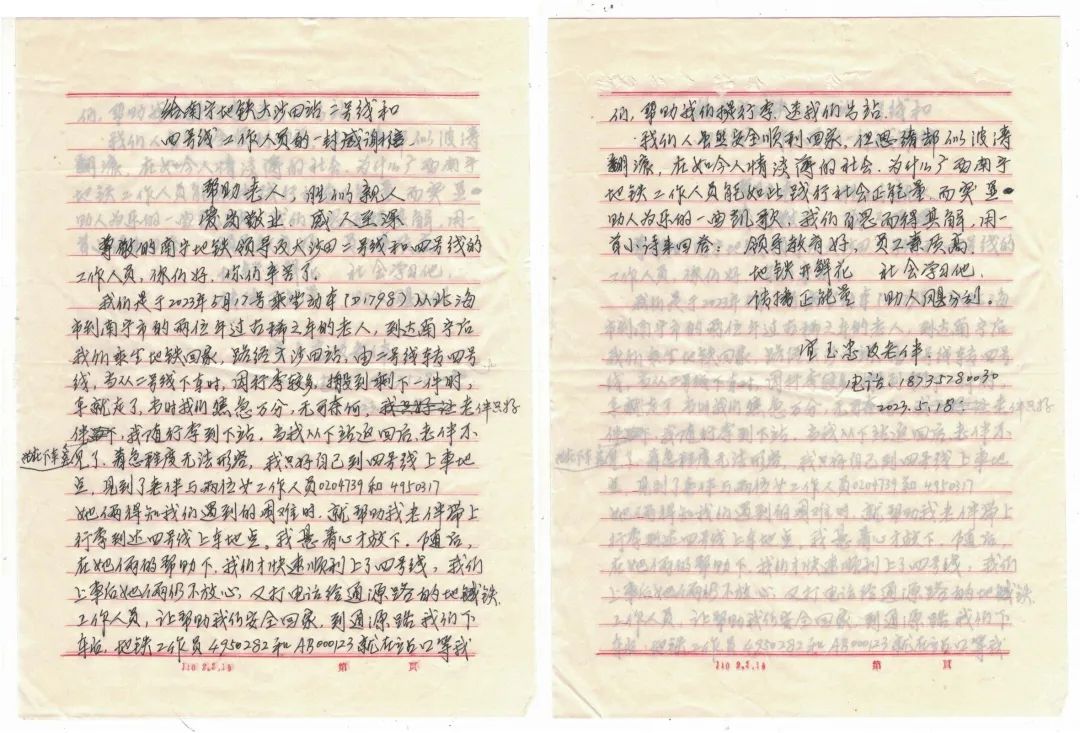 给南宁地铁大沙田站二号线和
四号线工作人员的一封感谢信
帮助老人，胜似亲人
爱岗敬业，感人至深
尊敬的南宁地铁领导及大沙田二号线和四号线的
工作人员，你们好，你们辛苦了。
我们是于2023年5月17号乘坐动车（D1798）从北海
市到南宁市的两位年过古稀之年的老人，到达南宁后
我们乘坐地铁回家，路经大沙田站，由二号线转四号
线，当从二号线下车时，因行李较多，搬到剩下一件时，
车就走了，当时我们焦急万分，无可奈何，我老伴只好
在此下车，我随行李到下站，当我从下站返回后，老伴不
见了，着急程度无法形容，我只好自己到四号线上车地
点，见到了老伴与两位女工作人员0204739和4950317
她俩得知我们遇到的困难时，就帮助我老伴带上
行李到达四号线上车地点。我悬着心才放下。随后，
在她俩的帮助下，我们才快速顺利上了四号线，我们
上车后她俩仍不放心，又打电话给通源路站的地铁
工作人员，让帮助我们安全回家，到通源路我们下
车后，地铁工作员4950282和AB000123就在站口等我
110 2.3.14 第 页
们，帮助我们提行李，送我们出站。
我们人虽然安全顺利回家，但思绪却似波涛
翻滚，在如今人情淡薄的社会，为什么广西南宁
地铁工作人员能如此践行社会正能量，而奏显
助人为乐的一曲凯歌，我们百思而得其解，用一
首小诗来回答：领导教育好，员工素质高
地铁开鲜花 社会学习他，
传播正能量 助人
电话：18735780030
2023.5.18
110 2.3.14 第 页